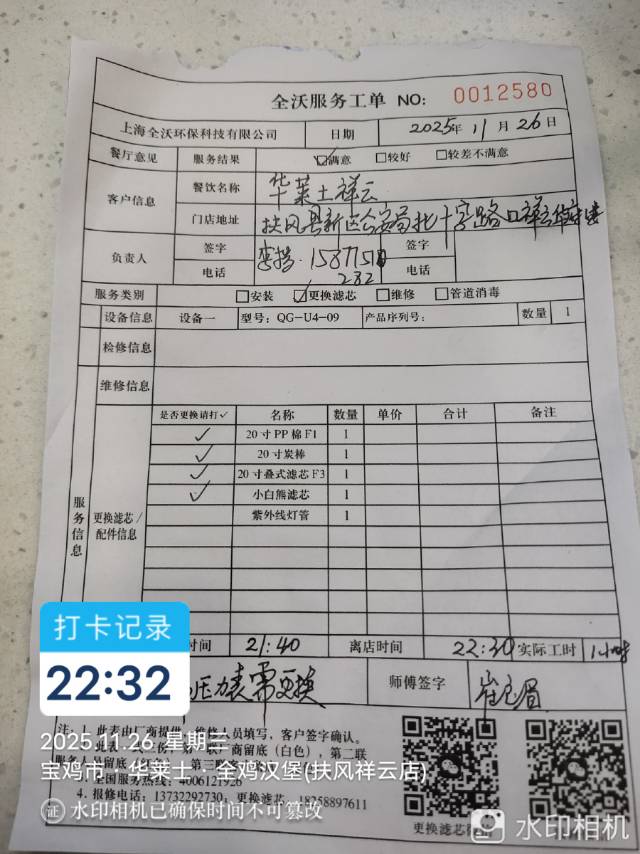 全沃服务工单 NO: 0012580
上海全沃环保科技有限公司 日期 2025年 11月 26日
餐厅意见 服务结果 ☑满意 □较好 □较差不满意
客户信息 餐饮名称 华莱士祥云
门店地址 扶风县新区公安局北十字路口祥云
负责人 签字 签字
电话 电话
服务类别 □安装 ☑更换滤芯 □维修 □管道消毒
设备信息 设备一 型号: QG-U4-09 产品序列号: 数量 1
检修信息
维修信息
服务信息
更换滤芯/配件信息
是否更换请打✓ 名称 数量 单价 合计 备注
✓ 20寸PP棉F1 1
✓ 20寸炭棒 1
✓ 20寸叠式滤芯F3 1
✓ 小白熊滤芯 1
紫外线灯管 1
时间 21:40 离店时间 22:30 实际工时 1小时
压力表需更换 师傅签字
打卡记录
22:32
注: 1. 此表由厂商提供, 维修人员填写, 客户签字确认。
厂商留底(白色), 第二联
2025.11.26 星期三
宝鸡市·华莱士·全鸡汉堡(扶风祥云店)
全国服务热线: 4006121926
4. 报修电话: 13732292730; 更换滤芯: 18258897611
水印相机已确保时间不可篡改
更换滤芯
水印相机